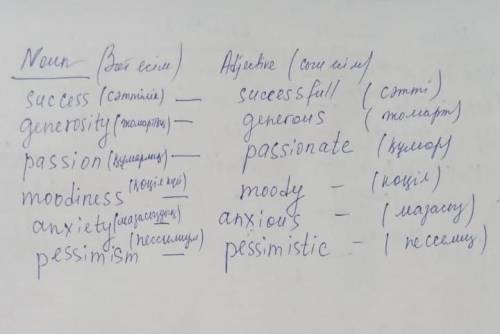 Noun (Зат есім) Adjective (сын есім)
success (сәттілік) — successfull (сәтті)
generosity (жомарттық) — generous (жомарт)
passion (құмарлық) — passionate (құмар)
moodiness (көңіл күй) — moody — (көңіл)
anxiety (мазасыздық) — anxious — (мазасыз)
pessimism (пессимизм) — pessimistic — (пессемиз)